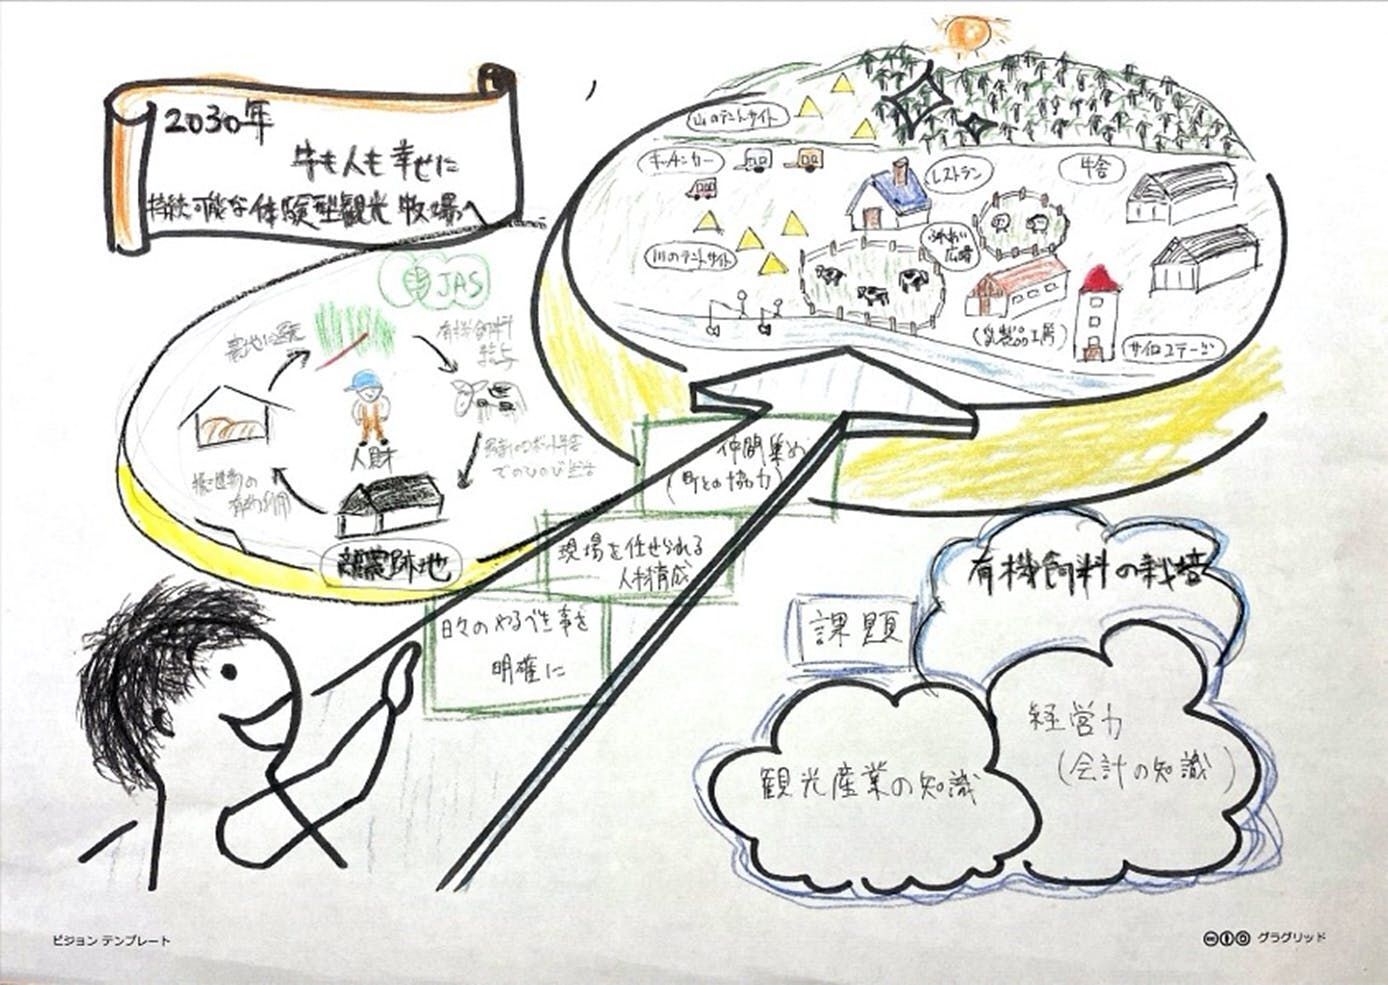 2030年
牛も人も幸せに
持続可能な体験型観光牧場へ
山のテントサイト
キッチンカー
レストラン
牛舎
川のテントサイト
ふれあい
広場
(乳製品工房)
サイロステージ
有機JAS
農地に還元
有機飼料
給与
人財
でのびのび生活
堆肥の
有効利用
離農跡地
仲間集め
(町との協力)
現場を任せられる
人材育成
日々のやるべき事を
明確に
課題
有機飼料の栽培
経営力
(会計の知識)
観光産業の知識
ビジョン テンプレート
グラグリッド